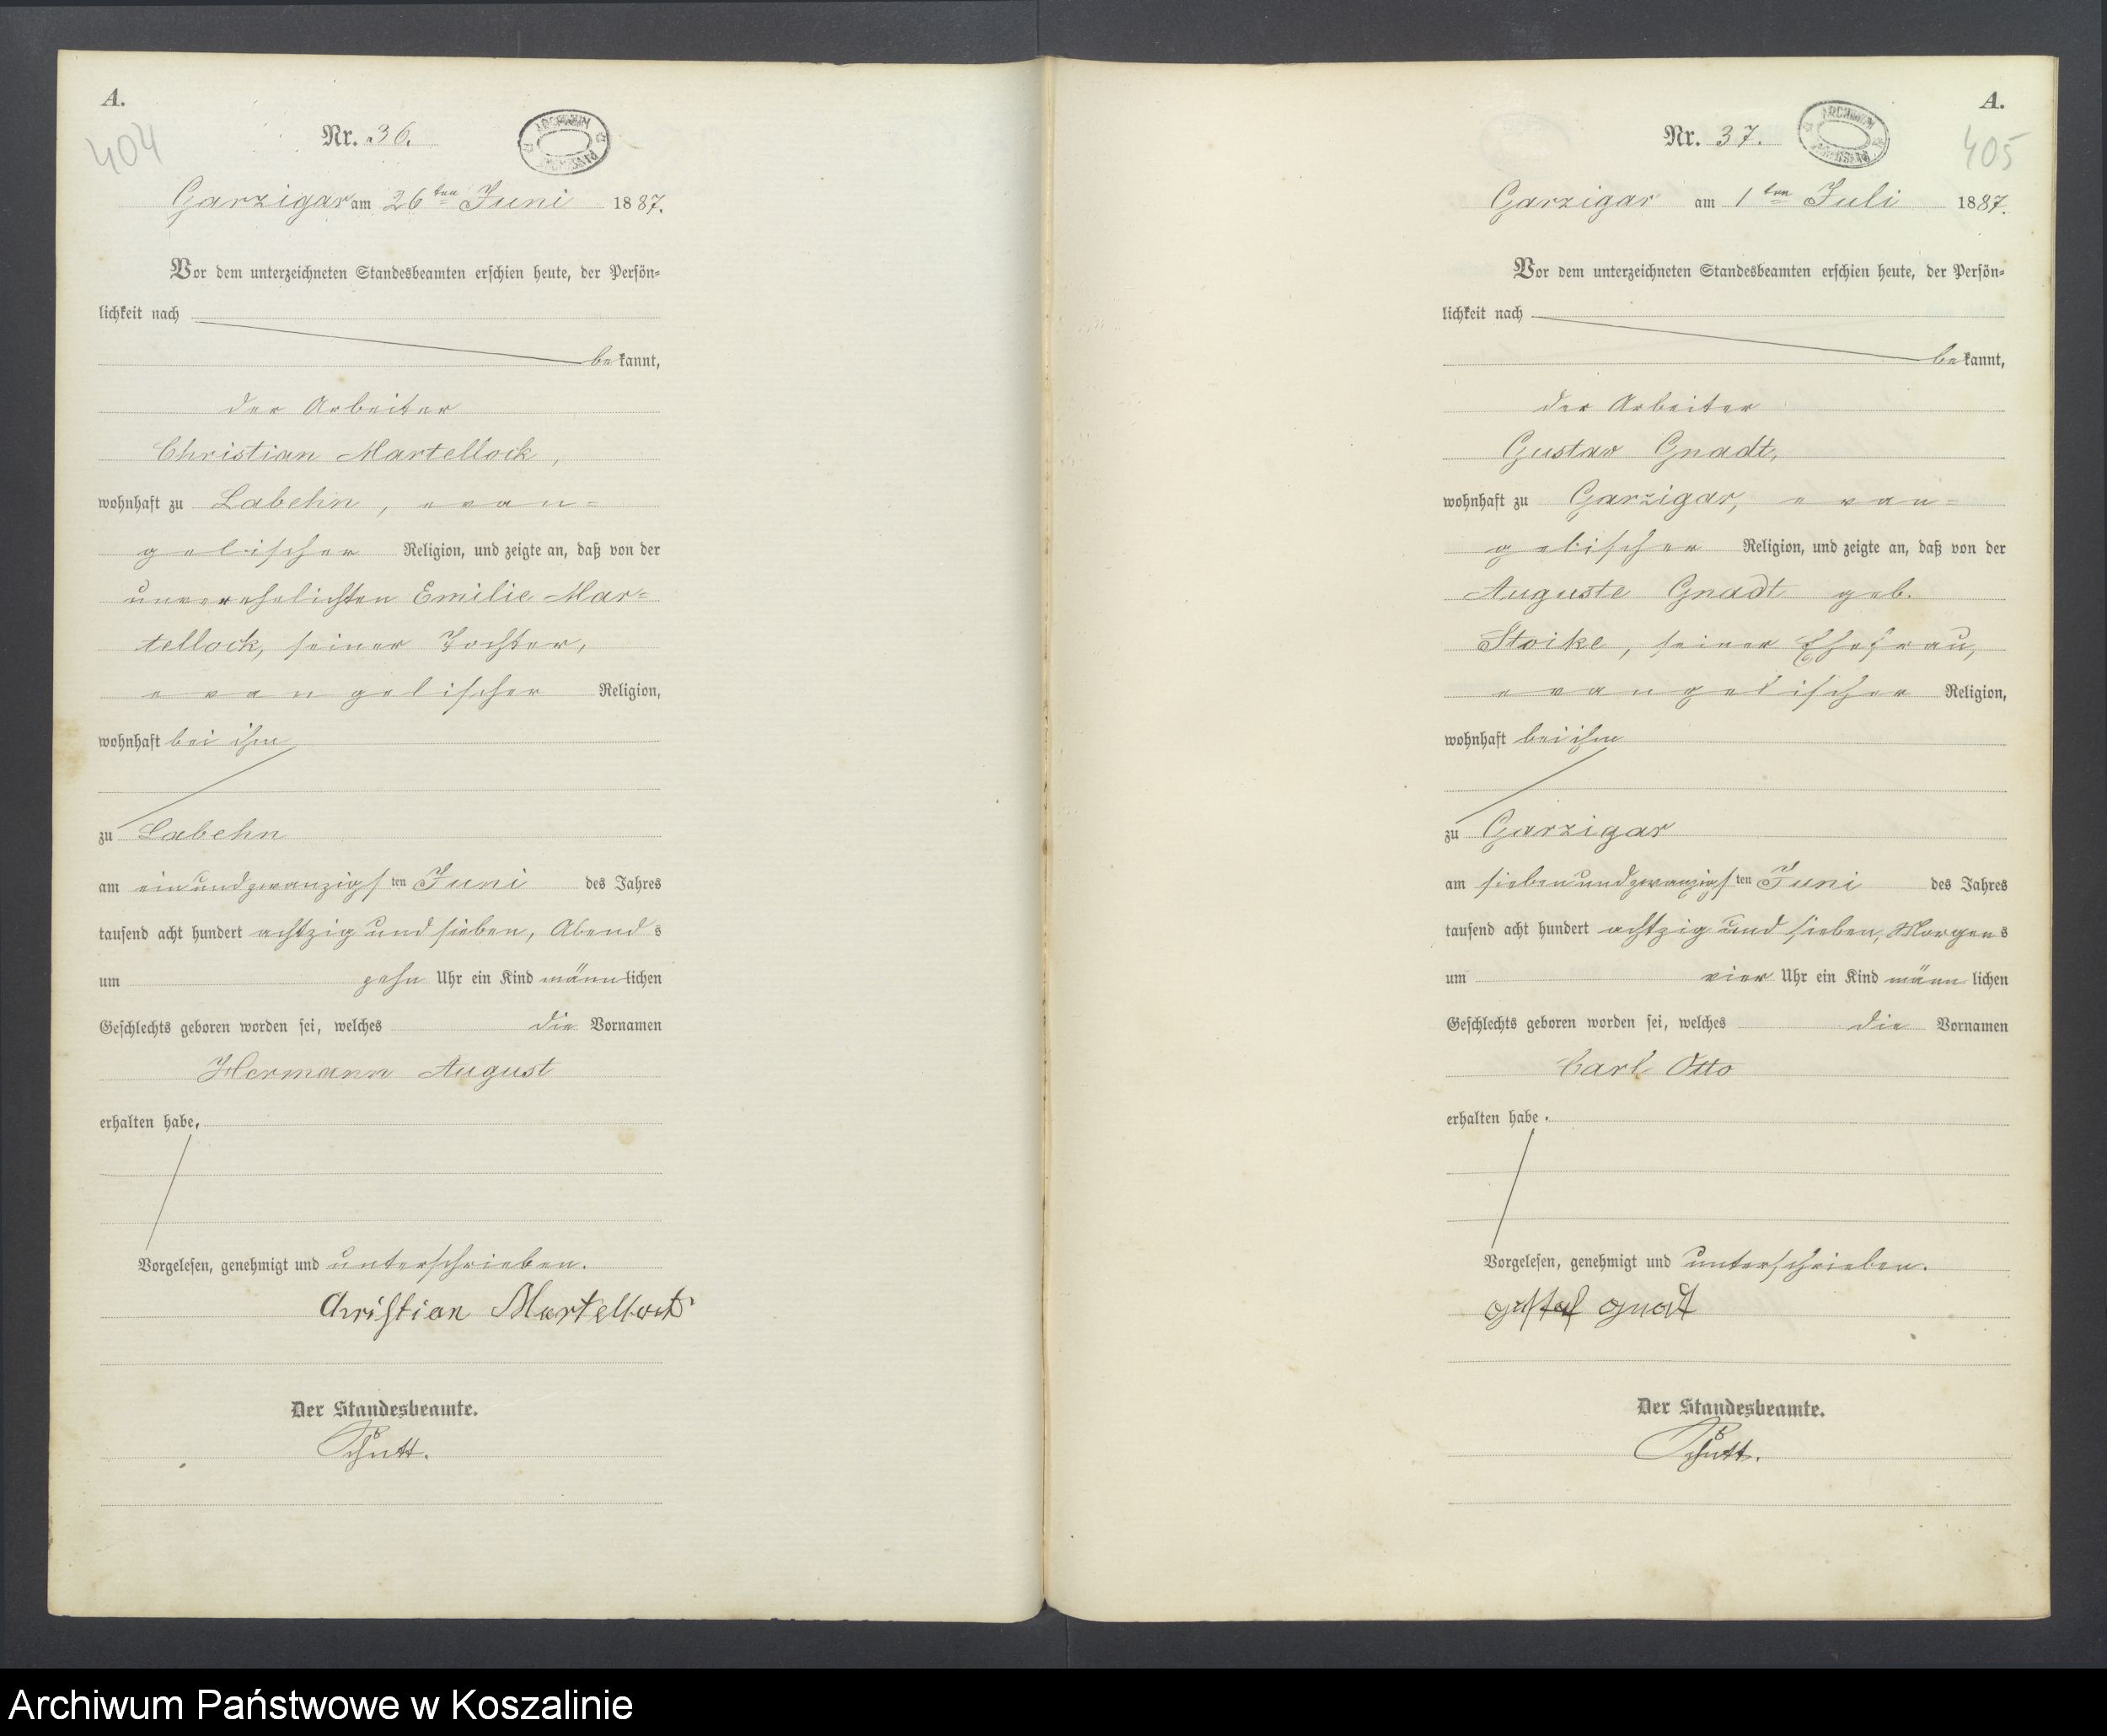 A.
404
Nr. 36.
ARCHIWUM
Garzigar am 26ten Juni 1887.
Vor dem unterzeichneten Standesbeamten erschien heute, der Persön-
lichkeit nach
bekannt,
der Arbeiter
Christian Martellock,
wohnhaft zu Labehn, evan-
gelischer Religion, und zeigte an, daß von der
unverehelichten Emilie Mar-
tellock, seiner Tochter,
evangelischer Religion,
wohnhaft bei ihm
zu Labehn
am einundzwanzigsten Juni des Jahres
tausend acht hundert achtzig und sieben, Abends
um zehn Uhr ein Kind männlichen
Geschlechts geboren worden sei, welches die Vornamen
Hermann August
erhalten habe.
Vorgelesen, genehmigt und unterschrieben.
Christian Martellock
Der Standesbeamte.
Schutt.
A.
405
Nr. 37.
ARCHIWUM
Garzigar am 1ten Juli 1887.
Vor dem unterzeichneten Standesbeamten erschien heute, der Persön-
lichkeit nach
bekannt,
der Arbeiter
Gustav Gnadt,
wohnhaft zu Garzigar, evan-
gelischer Religion, und zeigte an, daß von der
Auguste Gnadt geb.
Stoike, seiner Ehefrau,
evangelischer Religion,
wohnhaft bei ihm
zu Garzigar
am siebenundzwanzigsten Juni des Jahres
tausend acht hundert achtzig und sieben, Morgens
um vier Uhr ein Kind männlichen
Geschlechts geboren worden sei, welches die Vornamen
Carl Otto
erhalten habe.
Vorgelesen, genehmigt und unterschrieben.
Gustaf Gnadt
Der Standesbeamte.
Schutt.
Archiwum Państwowe w Koszalinie